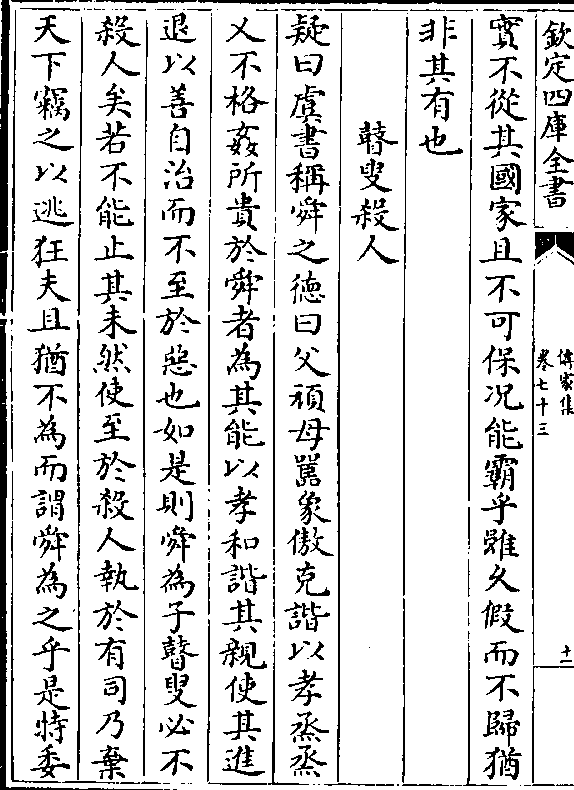 欽定四庫全書
傳家集
卷七十三
十二
實不從其國家且不可保况能霸乎雖久假而不歸猶
非其有也
瞽叟殺人
疑曰虞書稱舜之德曰父頑母嚚象傲克諧以孝烝烝
乂不格姦所貴於舜者為其能以孝和諧其親使其進
退以善自治而不至於惡也如是則舜為子瞽叟必不
殺人矣若不能止其未然使至於殺人執於有司乃棄
天下竊之以逃狂夫且猶不為而謂舜為之乎是特委